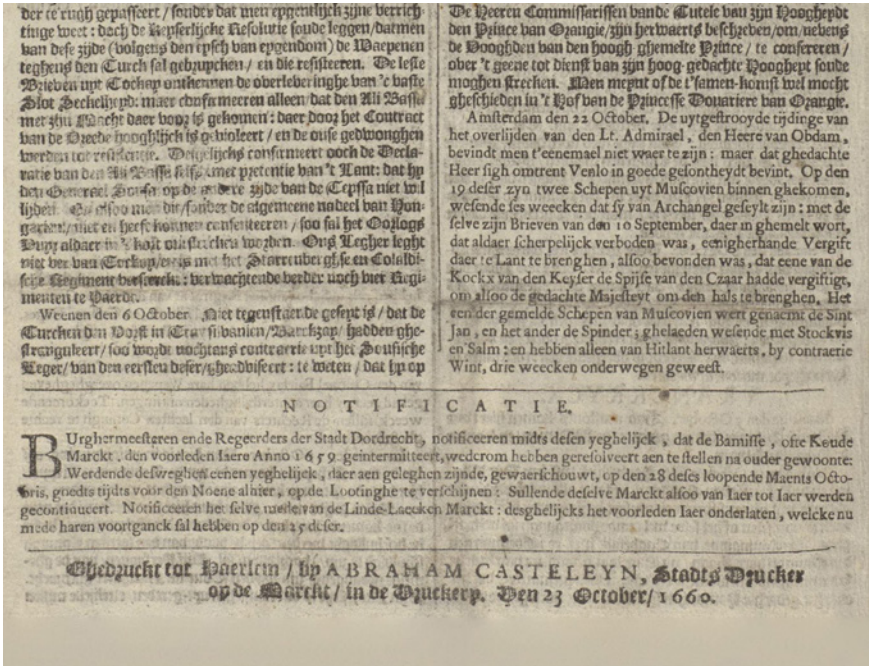 der te rugh gepasseert / sonder dat men eygentlijck zijne verrich-
tinge weet: doch de Keyserlijcke Resolutie soude leggen / datmen
van dese zijde (volgens den eysch van eygendom) de Waepenen
teghens den Turck sal gebruycken / en die resisteren. De leste
Brieven uyt Tockay ontkennen de overleveringhe van 't vaste
Slot Seckelheyd: maer confirmeeren alleen / dat den Ali Bassa
met zijn Macht daer voor is gekomen: daer door het Contract
van de Vrede hooghlijck is gevioleert / en de onse gedwonghen
werden tot resistentie. Desgelijcks confirmeert ooch de Decla-
ratie van den Ali Bassa selfs, met pretentie van 't Lant: dat hy
den Generael Sousa op de andere zijde van de Teyssa niet wil
lijden. En alsoo men dit / sonder de algemeene nadeel van Hon-
garien / niet en heeft konnen consenteeren / soo sal het Oorlogs
Vuyr aldaer in 't kort ontsteken worden. Ons Legher leght
niet ver van Tockay / en is met het Starrenberghse en Colaldi-
sche Regiment versterckt: verwachtende verder noch vier Regi-
menten te Paerde.
Weenen den 6 October. Niet tegenstaende geseyt is / dat de
Turcken den Vorst in Transsilvanien / Barckzay / hadden ghe-
stranguleert / soo wordt nochtans contrarie uyt het Sousische
Leger / van den eersten deser / gheadviseert: te weten / dat hy op
De Heeren Commissarissen vande Tutele van zijn Hoogheydt
den Prince van Orangie, zijn herwaerts beschreven / om / nevens
de Vooghden van den hoogh-ghemelte Prince / te confereren /
over 't geene tot dienst van zijn hoog-gedachte Hoogheyt soude
moghen strecken. Men meynt of de t'samen-komst wel mocht
gheschieden in 't Hof van de Princesse Douariere van Orangie.
Amsterdam den 22 October. De uytgestrooyde tijdinge van
het overlijden van den Lt. Admirael, den Heere van Obdam,
bevindt men t'eenemael niet waer te zijn: maer dat ghedachte
Heer sigh omtrent Venlo in goede gesontheydt bevint. Op den
19 deser zyn twee Schepen uyt Muscovien binnen ghekomen,
wesende ses weecken dat sy van Archangel geseylt zijn: met de
selve zijn Brieven van den 10 September, daer in ghemelt wort,
dat aldaer scherpelijck verboden was, eenigherhande Vergift
daer te Lant te brenghen, alsoo bevonden was, dat eene van de
Kockx van den Keyser de Spijse van den Czaar hadde vergiftigt,
om alsoo de gedachte Majesteyt om den hals te brenghen. Het
een der gemelde Schepen van Muscovien wert genaemt de Sint
Jan, en het ander de Spinder; ghelaeden wesende met Stockvis
en Salm: en hebben alleen van Hitlant herwaerts, by contraerie
Wint, drie weecken onderwegen geweest.
NOTIFICATIE.
BUrghermeesteren ende Regeerders der Stadt Dordrecht, notificeeren midts desen yeghelijck, dat de Bamisse, ofte Keude
Marckt, den voorleden Iaere Anno 1659 geintermitteert, wederom hebben geresolveert aen te stellen na ouder gewoonte:
Werdende desweghen eenen yeghelijck, daer aen geleghen zijnde, gewaerschouwt, op den 28 deses loopende Maents Octo-
bris, goedts tijdts voor den Noene alhier, op de Lootinghe te verschijnen: Sullende deselve Marckt alsoo van Iaer tot Iaer werden
gecontinueert. Notificeeren het selve mede van de Linde-Laecken Marckt: desghelijcks het voorleden Iaer onderlaten, welcke nu
mede haren voortganck sal hebben op den 25 deser.
Ghedruckt tot Haerlem / by ABRAHAM CASTELEYN, Stadts Drucker
op de Marckt / in de Druckery. Den 23 October / 1660.